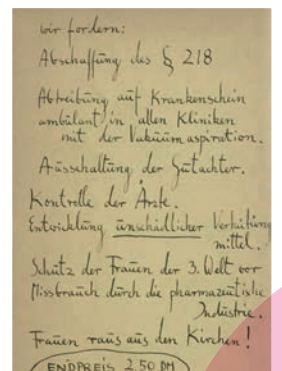 wir fordern:
Abschaffung des § 218
Abtreibung auf Krankenschein
ambulant in allen Kliniken
mit der Vakuumaspiration.
Ausschaltung der Gutachter.
Kontrolle der Ärzte.
Entwicklung unschädlicher Verhütung
mittel.
Schutz der Frauen der 3. Welt vor
Missbrauch durch die pharmazeutische
Industrie.
Frauen raus aus den Kirchen!
ENDPREIS 2.50 DM